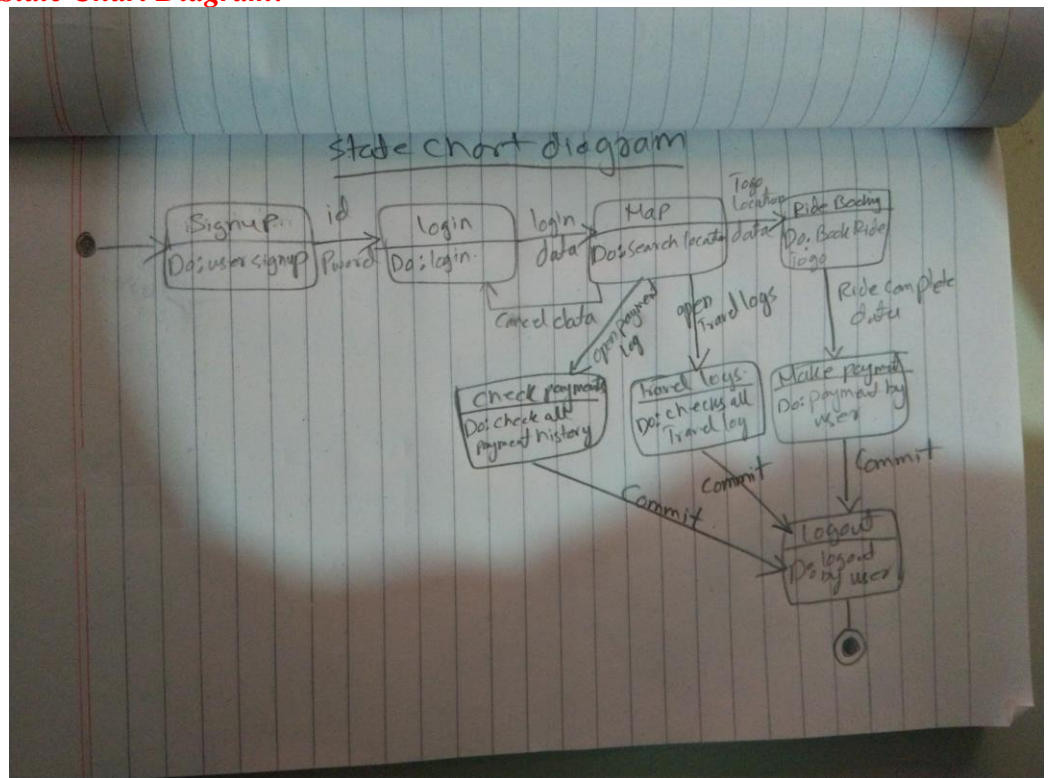 State Chart Diagram:
State chart diagram
Signup
Do: user signup
id
Pword
login
Do: login.
login
data
Map
Do: search locatn
Togo
Location
data
Ride Booking
Do: Book Ride
Togo
Cancel data
open payment
log
open
Travel logs
Ride complete
data
Check payments
Do: check all
payment history
Travel logs.
Do: checks all
Travel log
Make payment
Do: payment by
user
Commit
Commit
Commit
Logout
Do: logout
by user